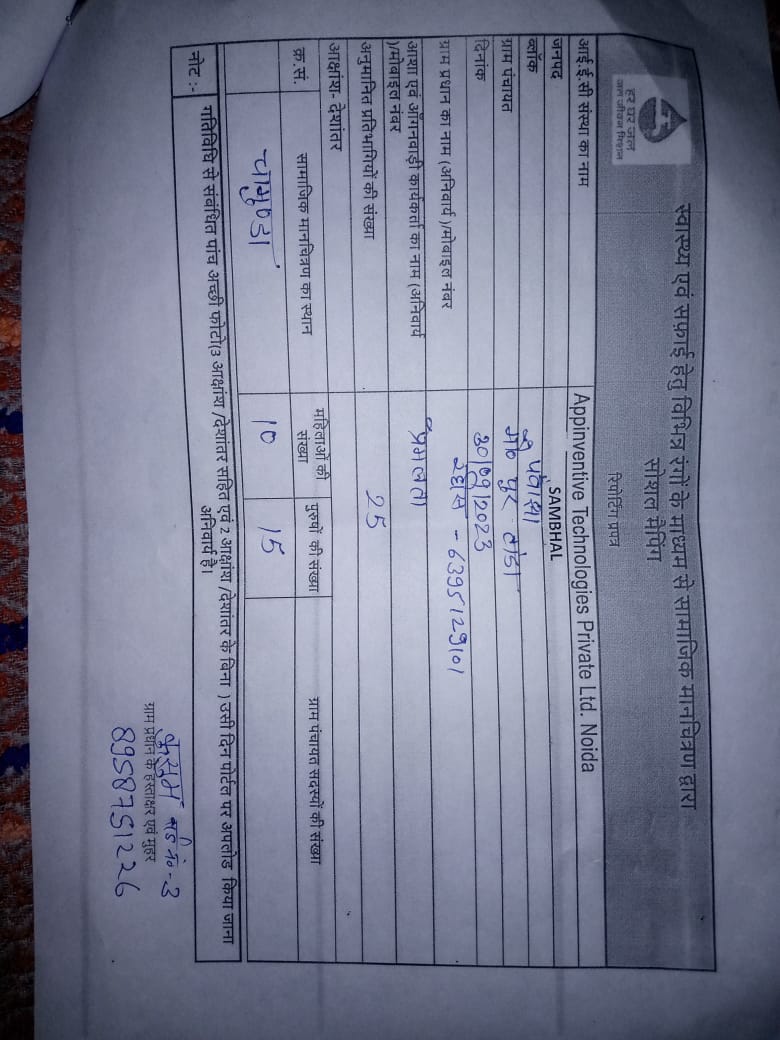 हर घर जल
जल जीवन मिशन
स्वास्थ्य एवं सफ़ाई हेतु विभिन्न रंगों के माध्यम से सामाजिक मानचित्रण द्वारा
सोशल मैपिंग
रिपोर्टिंग प्रपत्र
आई.ई.सी संस्था का नाम Appinventive Technologies Private Ltd. Noida
जनपद SAMBHAL
ब्लॉक पंवासा
ग्राम पंचायत पुर टांडा
दिनांक 30/09/2023
ग्राम प्रधान का नाम (अनिवार्य )/मोबाइल नंबर - 6395129101
आशा एवं आँगनवाड़ी कार्यकर्ता का नाम (अनिवार्य प्रेमलता
)/मोबाइल नंबर
अनुमानित प्रतिभागियों की संख्या 25
आक्षांश- देशांतर
क्र.सं. सामाजिक मानचित्रण का स्थान महिलाओं की संख्या पुरुषों की संख्या ग्राम पंचायत सदस्यों की संख्या
चामुण्डा 10 15
नोट :- गतिविधि से संबंधित पांच अच्छी फोटो(3 आक्षांश /देशांतर सहित एवं 2 आक्षांश /देशांतर के बिना ) उसी दिन पोर्टल पर अपलोड किया जाना
अनिवार्य है।
कुसुम वार्ड नं०-3
ग्राम प्रधान के हस्ताक्षर एवं मुहर
8958751226